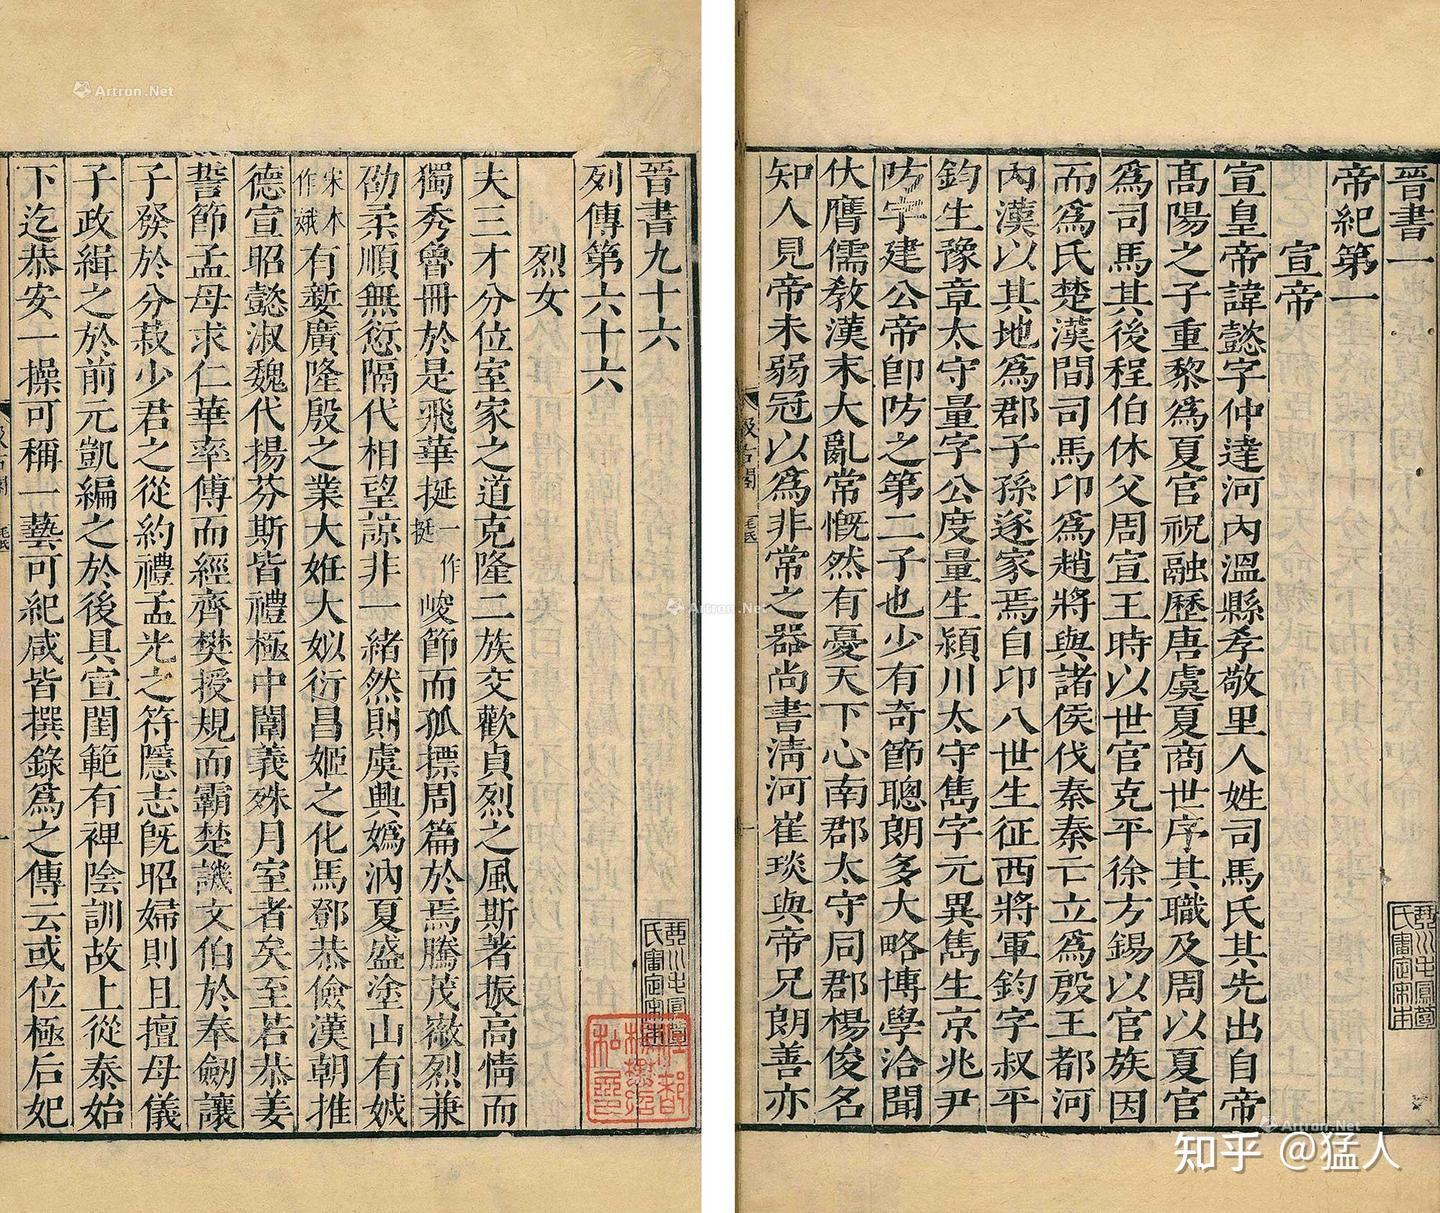 晉書一
帝紀第一
宣帝
宣皇帝諱懿字仲達河內溫縣孝敬里人姓司馬氏其先出自帝
高陽之子重黎爲夏官祝融歷唐虞夏商世序其職及周以夏官
爲司馬其後程伯休父周宣王時以世官克平徐方錫以官族因
而爲氏楚漢間司馬卬爲趙將與諸侯伐秦秦亡立爲殷王都河
內漢以其地爲郡子孫遂家焉自卬八世生征西將軍鈞字叔平
鈞生豫章太守量字公度量生潁川太守雋字元異雋生京兆尹
防字建公帝卽防之第二子也少有奇節聰朗多大略博學洽聞
伏膺儒敎漢末大亂常慨然有憂天下心南郡太守同郡楊俊名
知人見帝未弱冠以爲非常之器尚書淸河崔琰與帝兄朗善亦
晉書九十六
列傳第六十六
烈女
夫三才分位室家之道克隆二族交歡貞烈之風斯著振高情而
獨秀魯冊於是飛華挺一作挺峻節而孤摽周篇於焉騰茂徽烈兼
劭柔順無愆隔代相望諒非一緒然則虞興嬀汭夏盛塗山有娀
宋本作娥有㜪廣隆殷之業大姙大姒衍昌姬之化馬鄧恭儉漢朝推
德宣昭懿淑魏代揚芬斯皆禮極中闈義殊月室者矣至若恭姜
誓節孟母求仁華率傅而經齊樊授規而霸楚譏文伯於奉劒讓
子發於分菽少君之從約禮孟光之符隱志旣昭婦則且擅母儀
子政緝之於前元凱編之於後具宣閨範有裨陰訓故上從泰始
下迄恭安一操可稱一藝可紀咸皆撰錄爲之傳云或位極后妃
汲古閣
毛氏
一
汲古閣
毛氏
一
Artron.Net
Artron.Net
Artron.Net
知乎 @猛人